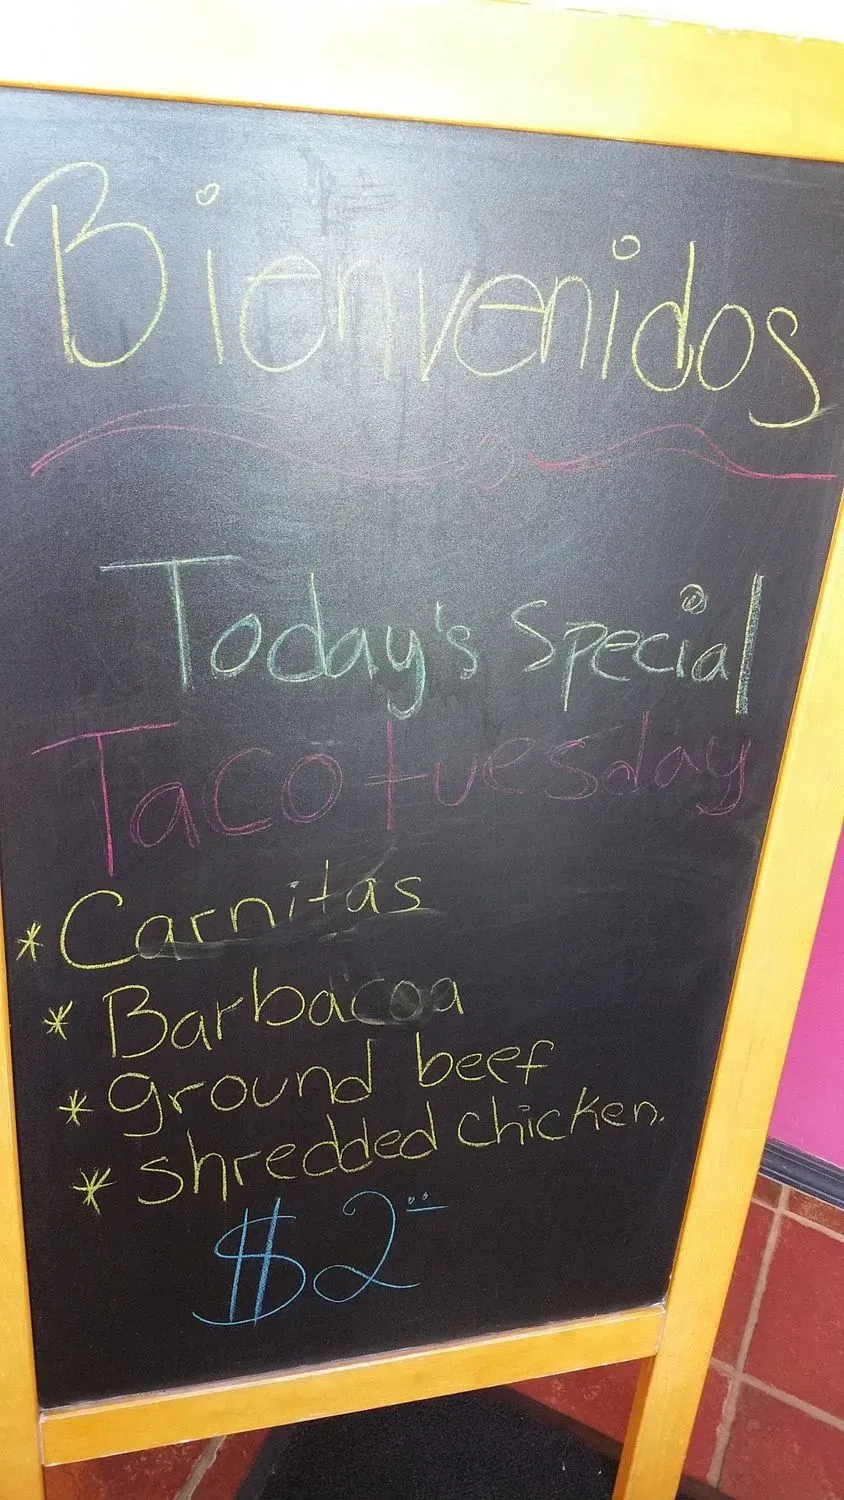 Bienvenidos
Today's Special
Taco tuesday
* Carnitas
* Barbacoa
* ground beef
* shredded chicken.
$2.00